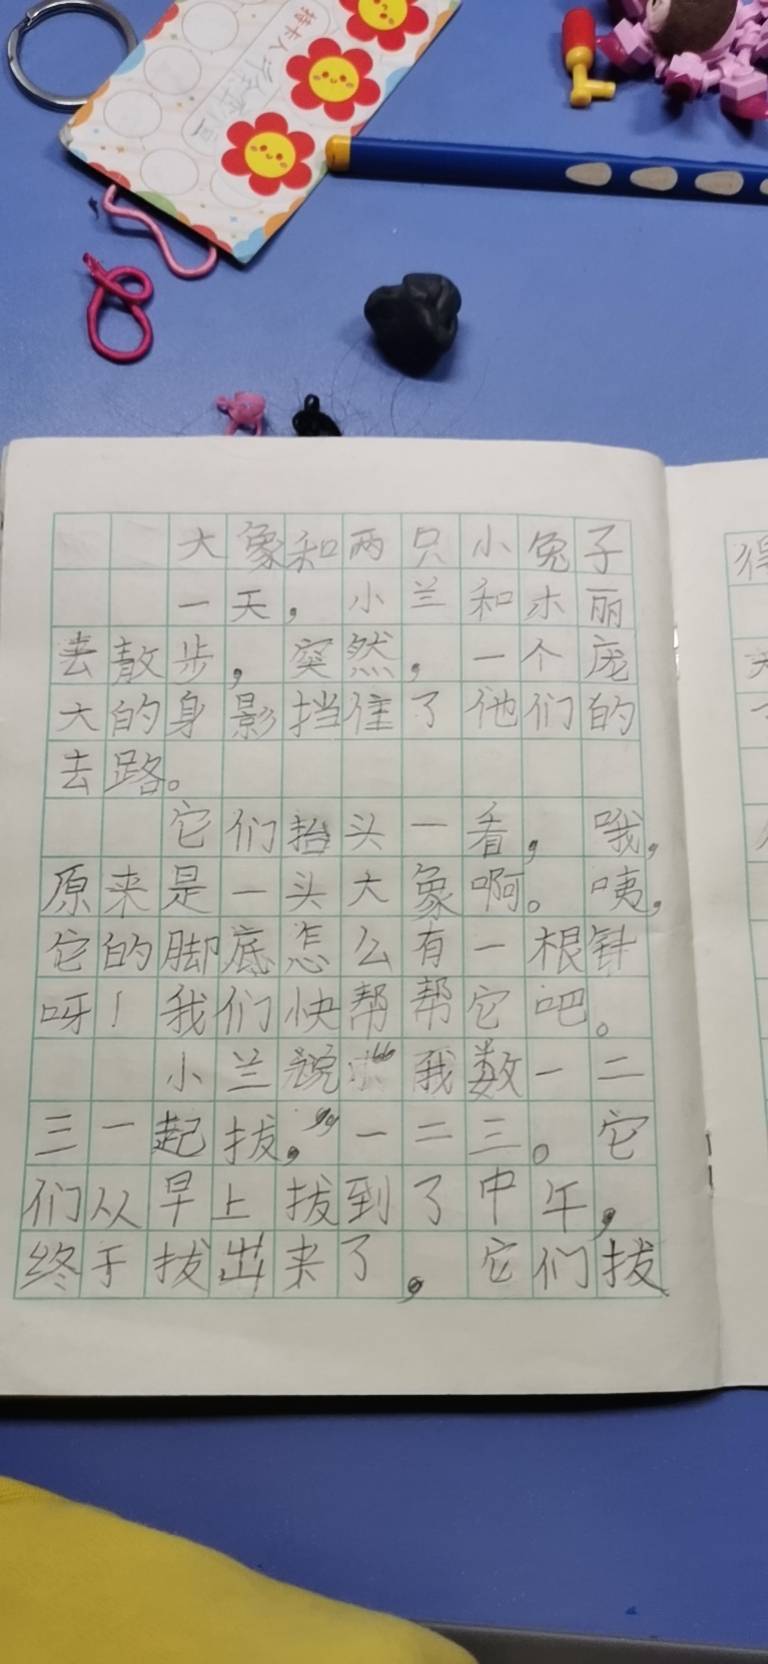 大象和两只小兔子
一天，小兰和木丽
去散步，突然，一个庞
大的身影挡住了他们的
去路。
它们抬头一看，哦，
原来是一头大象啊。咦，
它的脚底怎么有一根针
呀！我们快帮帮它吧。
小兰说“我数一二
三一起拔，”一二三。它
们从早上拔到了中午，
终于拔出来了，它们拔